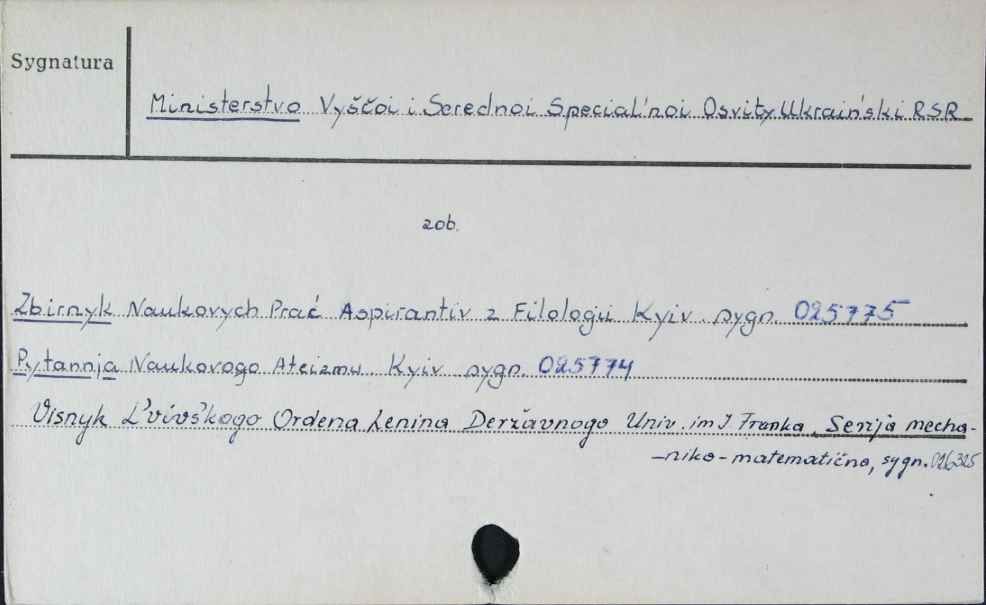 Sygnatura
Ministerstvo Vyščoi i Serednoi Special'noi Osvity Ukraiński RSR
zob.
Zbirnyk Naukovych Prać Aspirantiv z Filologii Kyiv sygn. 025775
Pytannja Naukovogo Ateizmu Kyiv sygn. 025774
Visnyk L'vivs'kogo Ordena Lenina Deržavnogo Univ. im I. Franka, Serija mecha-
-niko-matematična, sygn. 026325